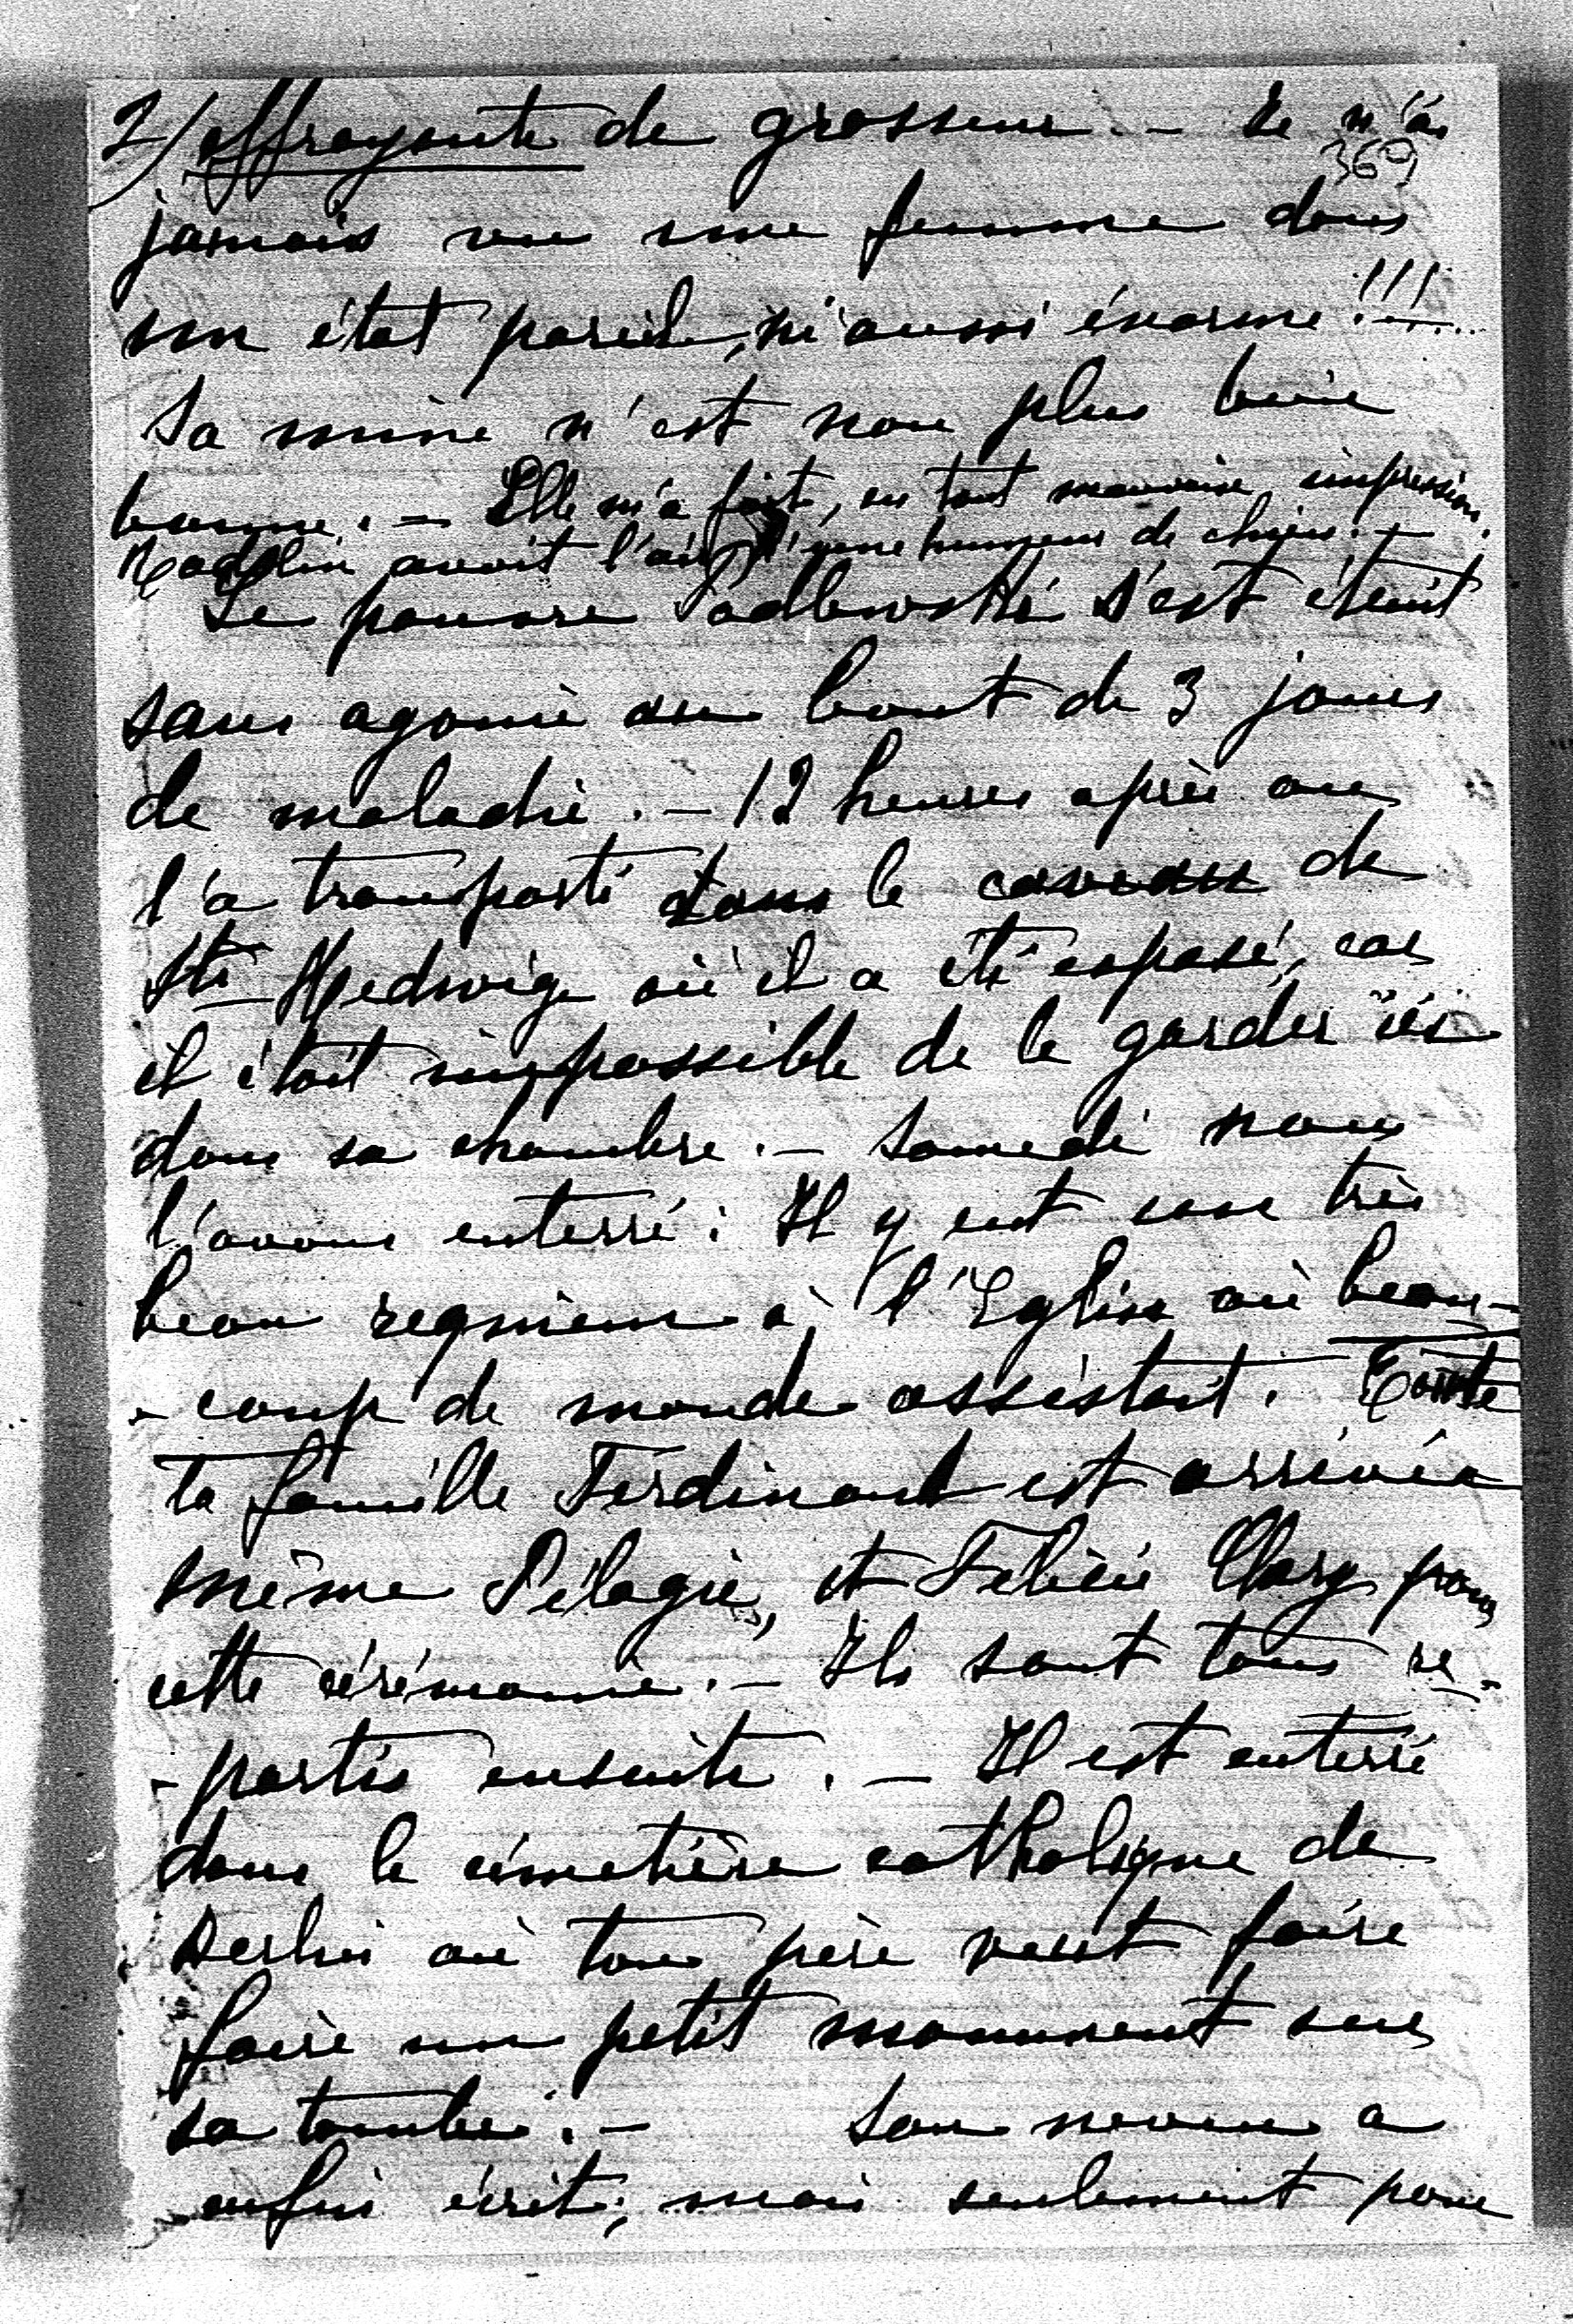 2/ effroyante de grosseur. – Je n'ai
369
jamais vu une femme dans
un état pareil, ni aussi énorme!!!....
Sa mine n'est non plus bien
bonne. – Elle m'a fait, en tout mauvaise impression.
avait l'air d'une humeur de chien. –
Le pauvre Podlewski s'est éteint
sans agonie au bout de 3 jours
de maladie. – 12 heures après on
l'a transporté dans le caveau de
Ste Hedwige où il a été exposé, car
il était impossible de le garder ici
dans sa chambre. – Samedi nous
l'avons enterré: Il y eut un très
beau requiem à l'Eglise où beau-
-coup de monde assistait. Toute
la famille Ferdinand est arrivée
même Pélagie, et Félicie Clary pour
cette cérémonie. – Ils sont tous re-
-partis ensuite. – Il est enterré
dans le cimetière catholique de
Berlin où ton père veut faire
faire un petit monument sur
sa tombe. – Son neveu a
enfin écrit; mais seulement pour